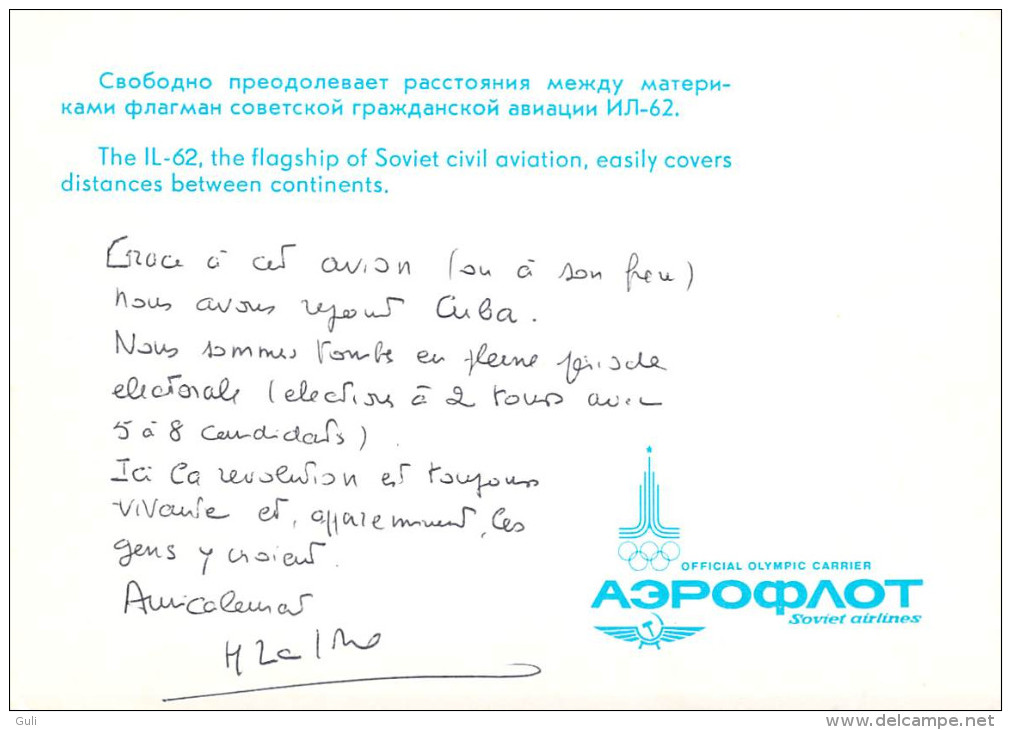 Свободно преодолевает расстояния между матери-
ками флагман советской гражданской авиации ИЛ-62.
The IL-62, the flagship of Soviet civil aviation, easily covers
distances between continents.
Grace à cet avion (ou à son frere)
Nous avons rejoint Cuba.
Nous sommes tombé en pleine période
electorale (elections à 2 tours avec
5 à 8 candidats).
Ici la revolution est toujours
vivante et, apparemment, les
gens y croient.
Amicalement
OFFICIAL OLYMPIC CARRIER
АЭРОФЛОТ
Soviet airlines
Guli
www.delcampe.net